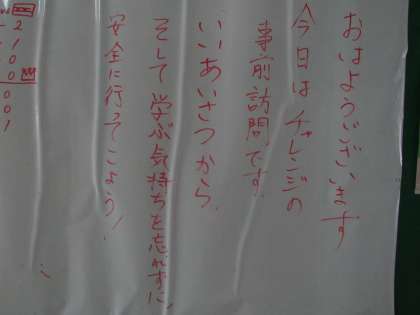 おはようございます
今日はチャレンジの
事前訪問です。
いいあいさつから、
そして学ぶ気持ちを忘れずに、
安全に行ってこよう!
2
1
0
0
0
0
1